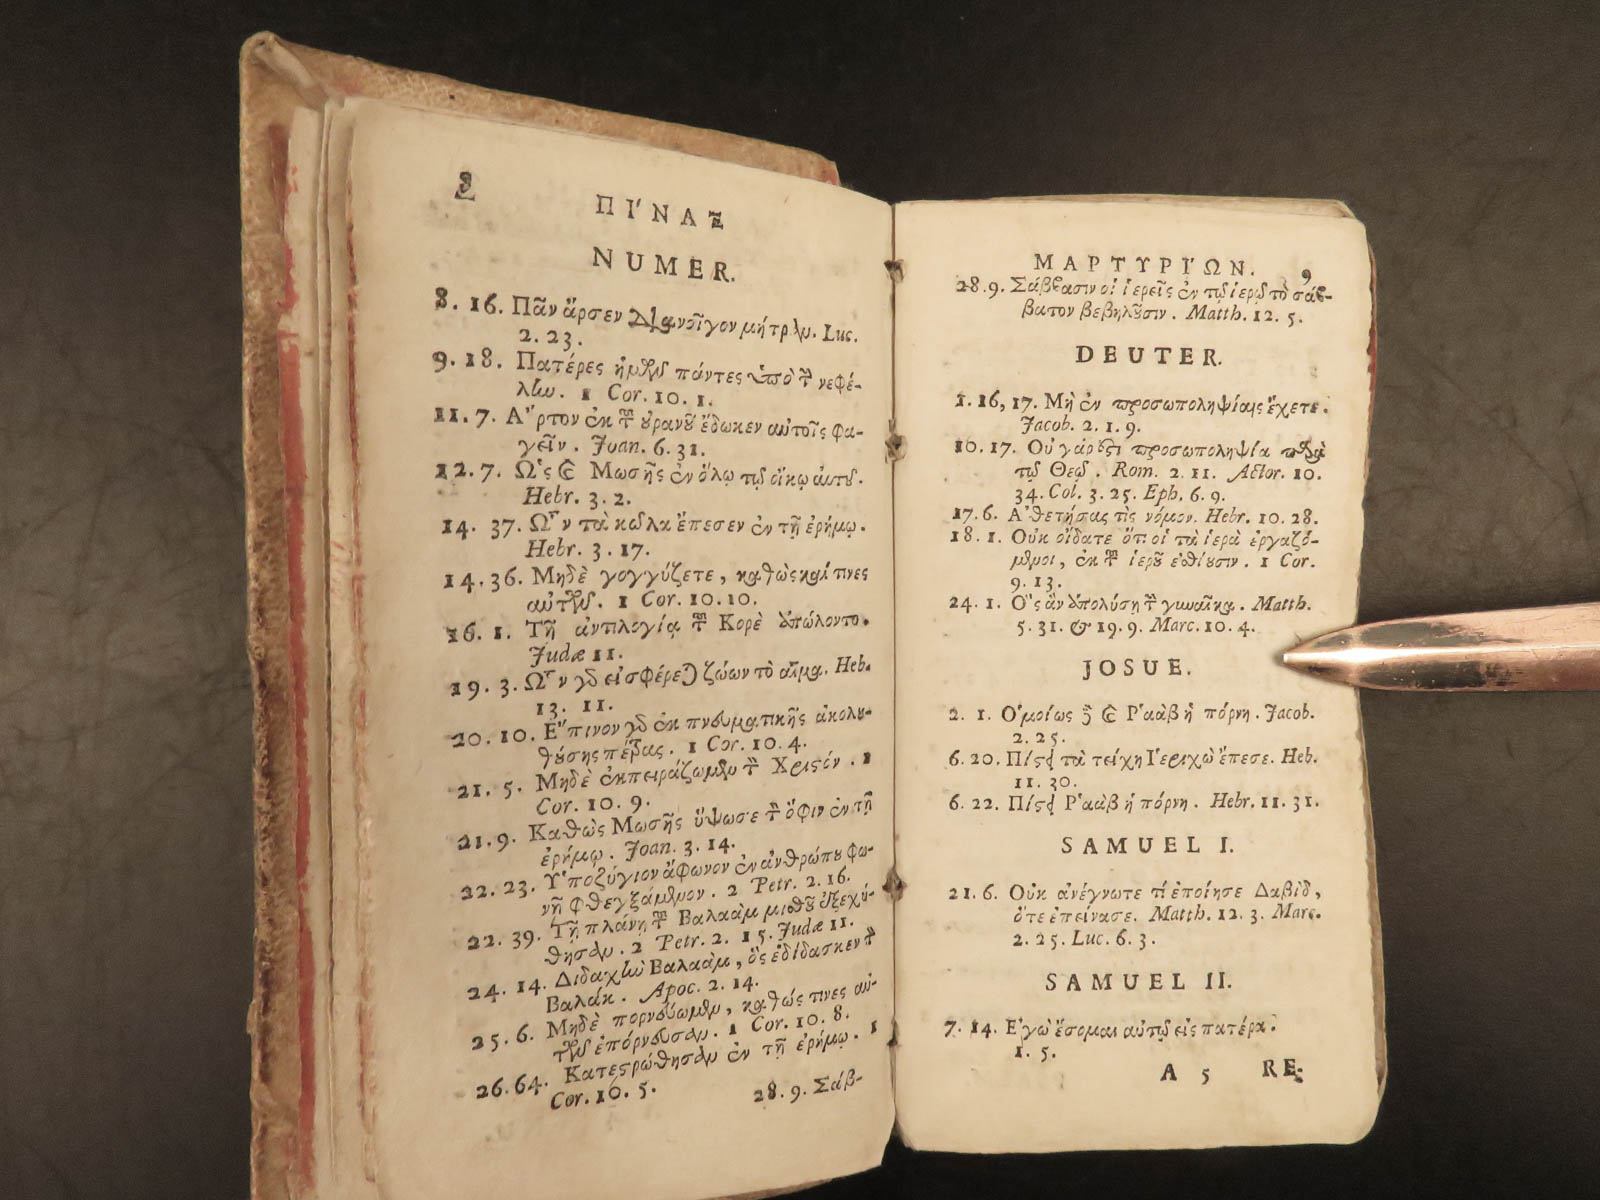 8
ΠΙ´ΝΑΞ
NUMER.
8. 16. Πᾶν ἄρσεν διανοῖγον μήτραν. Luc.
2. 23.
9. 18. Πατέρες ἡμῶν πάντες ὑπὸ τὴν νεφέ-
λην. 1 Cor. 10. 1.
11. 7. Α῎ρτον ἐκ τοῦ οὐρανοῦ ἔδωκεν αὐτοῖς φα-
γεῖν. Joan. 6. 31.
12. 7. Ω῾ς καὶ Μωσῆς ἐν ὅλῳ τῷ οἴκῳ αὐτοῦ.
Hebr. 3. 2.
14. 37. Ω῟ν τὰ κῶλα ἔπεσεν ἐν τῇ ἐρήμῳ.
Hebr. 3. 17.
14. 36. Μηδὲ γογγύζετε, καθὼς καί τινες
αὐτῶν. 1 Cor. 10. 10.
16. 1. Τῇ ἀντιλογίᾳ τοῦ Κορὲ ἀπώλοντο.
Judæ 11.
19. 3. Ω῟ν γὰρ εἰσφέρεται ζώων τὸ αἷμα. Heb.
13. 11.
20. 10. Ε῎πινον γὰρ ἐκ πνευματικῆς ἀκολου-
θούσης πέτρας. 1 Cor. 10. 4.
21. 5. Μηδὲ ἐκπειράζωμεν τὸν Χριστόν. 1
Cor. 10. 9.
21. 9. Καθὼς Μωσῆς ὕψωσε τὸν ὄφιν ἐν τῇ
ἐρήμῳ. Joan. 3. 14.
22. 23. Υ῾ποζύγιον ἄφωνον ἐν ἀνθρώπου φω-
νῇ φθεγξάμενον. 2 Petr. 2. 16.
22. 39. Τῇ πλάνῃ τοῦ Βαλαὰμ μισθοῦ ἐξεχύ-
θησαν. 2 Petr. 2. 15. Judæ 11.
24. 14. Διδαχὴν Βαλαὰμ, ὃς ἐδίδασκεν τὸν
Βαλάκ. Apoc. 2. 14.
25. 6. Μηδὲ πορνεύωμεν, καθώς τινες αὐ-
τῶν ἐπόρνευσαν. 1 Cor. 10. 8.
26. 64. Κατεστρώθησαν ἐν τῇ ἐρήμῳ. 1
Cor. 10. 5.
28. 9. Σάβ-
ΜΑΡΤΥΡΙ´ΩΝ. 9
28. 9. Σάββασιν οἱ ἱερεῖς ἐν τῷ ἱερῷ τὸ σάβ-
βατον βεβηλοῦσιν. Matth. 12. 5.
DEUTER.
1. 16, 17. Μὴ ἐν προσωποληψίαις ἔχετε.
Jacob. 2. 1. 9.
10. 17. Οὐ γάρ ἐστι προσωποληψία παρὰ
τῷ Θεῷ. Rom. 2. 11. Actor. 10.
34. Col. 3. 25. Eph. 6. 9.
17. 6. Α᾿θετήσας τὶς νόμον. Hebr. 10. 28.
18. 1. Οὐκ οἴδατε ὅτι οἱ τὰ ἱερὰ ἐργαζό-
μενοι, ἐκ τοῦ ἱεροῦ ἐσθίουσιν. 1 Cor.
9. 13.
24. 1. Ο῝ς ἂν ἀπολύσῃ τὴν γυναῖκα. Matth.
5. 31. & 19. 9. Marc. 10. 4.
JOSUE.
2. 1. Ο῾μοίως δὲ καὶ Ρ῾αὰβ ἡ πόρνη. Jacob.
2. 25.
6. 20. Πίστει τὰ τείχη Ι῾εριχὼ ἔπεσε. Heb.
11. 30.
6. 22. Πίστει Ρ῾αὰβ ἡ πόρνη. Hebr. 11. 31.
SAMUEL I.
21. 6. Οὐκ ἀνέγνωτε τί ἐποίησε Δαβὶδ,
ὅτε ἐπείνασε. Matth. 12. 3. Marc.
2. 25. Luc. 6. 3.
SAMUEL II.
7. 14. Ε᾿γὼ ἔσομαι αὐτῷ εἰς πατέρα.
1. 5.
A 5 RE-